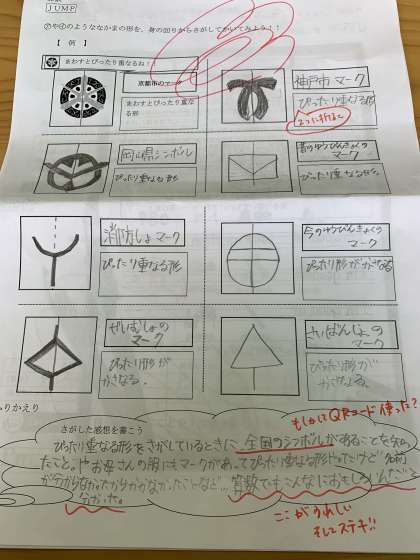 JUMP
㋐や㋑のようななかまの形を、身の回りからさがしてかいてみよう!!
【 例 】
まわすとぴったり重なるね!
京都市のマーク
まわすとぴったり重なる形
神戸市 マーク
ぴったり重なる形
2つに折ると
岡山県シンボル
ぴったり重なる形
昔のゆうびんきょくの
マーク
ぴったり重なる形
消防しょ マーク
ぴったり重なる形
今のゆうびんきょくの
マーク
ぴったり形がかさなる
ぜいむしょの
マーク
ぴったり形が
かさなる
さいばんしょの
マーク
ぴったり形が
かさなる
ふりかえり
さがした感想を書こう
もしかしてQRコード使った?
ぴったり重なる形をさがしているときに、全国のシンボルがあることを知っ
たこと。やお母さんの服にもマークがあってぴったり重なる形だったけど名前
が分からなかったから
算数でもこんなにおもしろいんだと
分かった。
ここがうれしい
そしてステキ!!